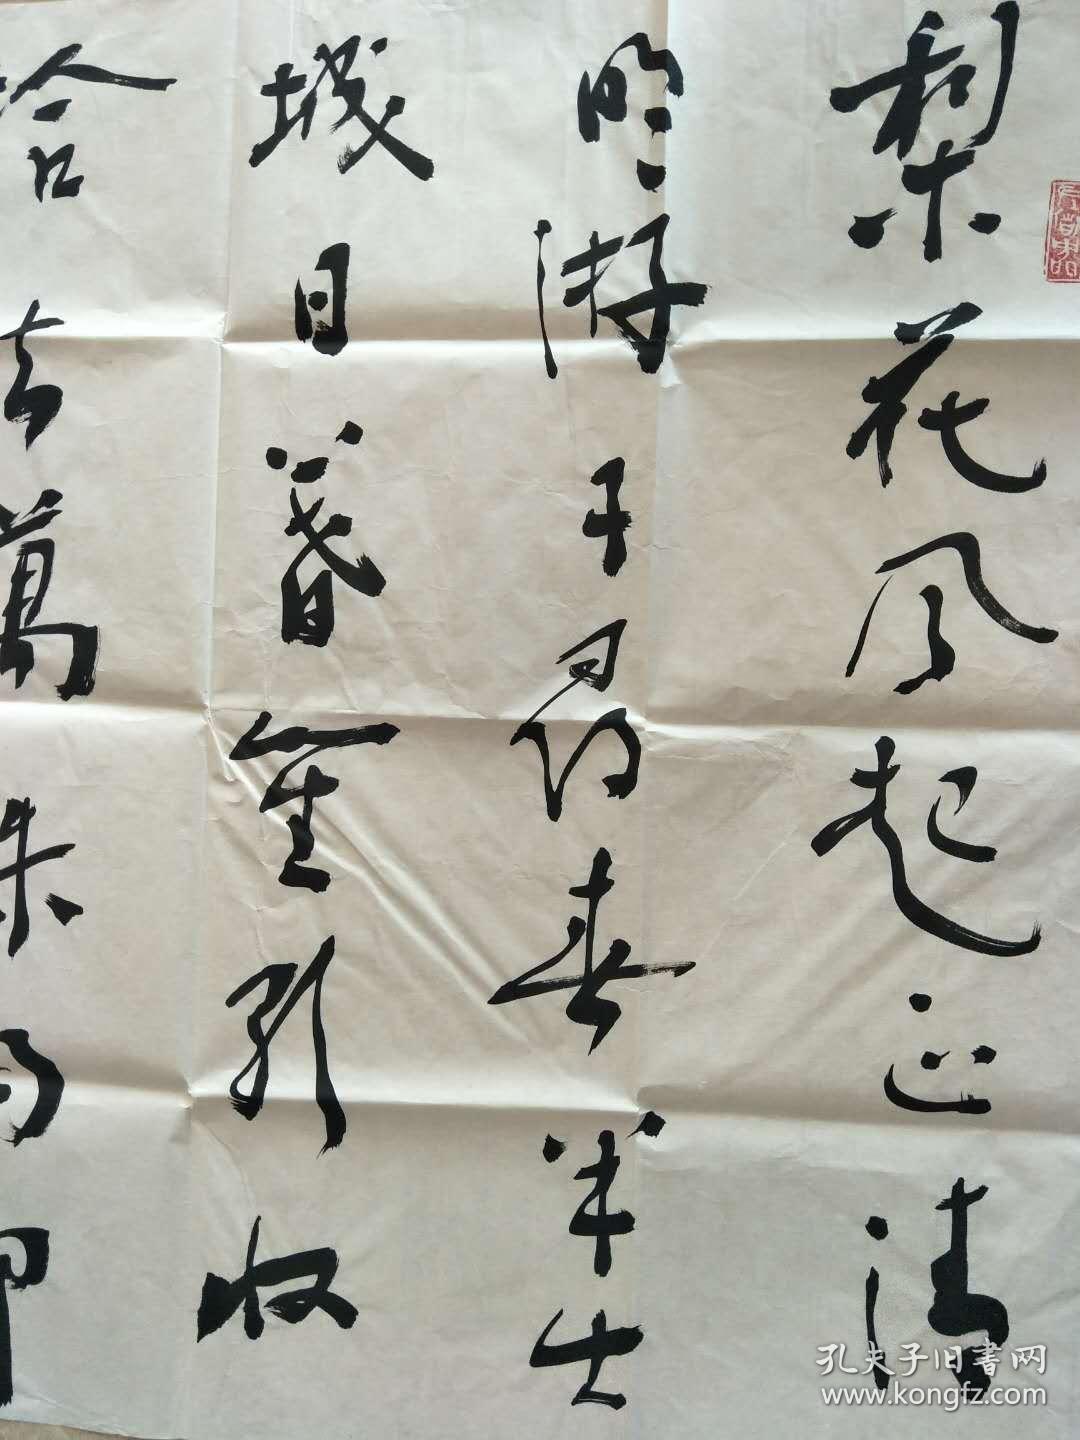 梨花风起正清
明游子尋春半出
城日暮笙歌收
拾去萬株楊柳
孔夫子旧書网
www.kongfz.com